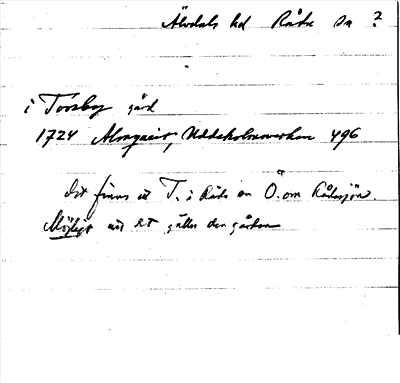 Älvdals hd Råda sn ?
i Torsby gård
1724 Almquist, Uddeholmsverken 496
det finns ett T. i Råda sn Ö. om Rådasjön.
Möjligt att det gäller den gården